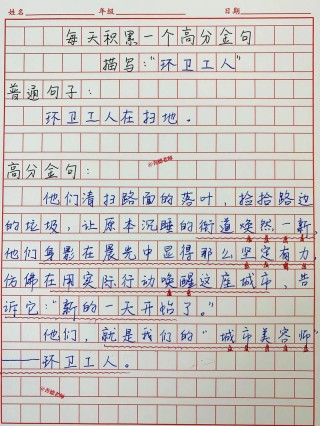 姓名 年级 日期
每天积累一个高分金句
描写:"环卫工人"
普通句子:
环卫工人在扫地。
高分金句:
他们清扫路面的落叶,捡拾路边
的垃圾,让原本沉睡的街道焕然一新,
他们身影在晨光中显得那么坚定有力,
仿佛在用实际行动唤醒这座城市,告
诉它:"新的一天开始了。"
他们,就是我们的"城市美容师"
——环卫工人。